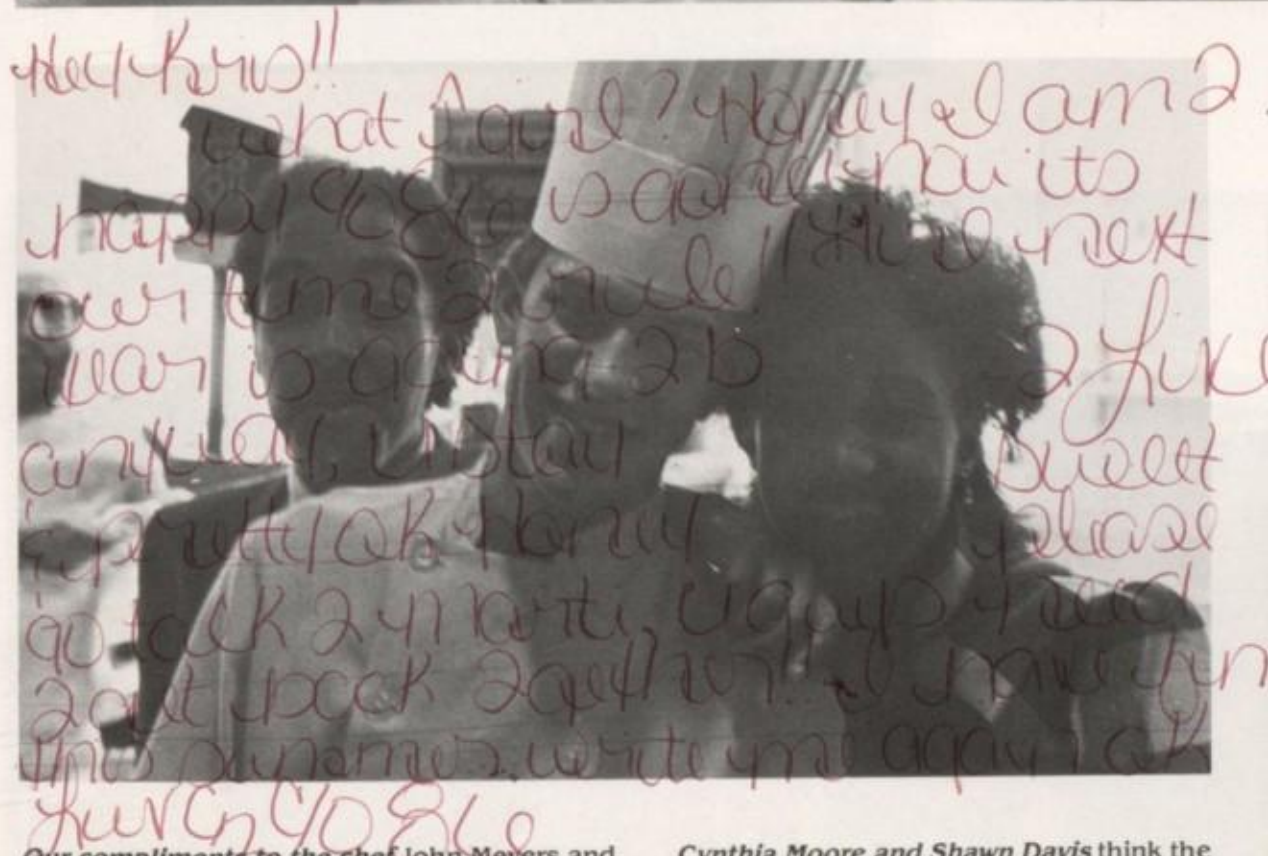 Hey Kris!!
what girl? Honey I am 2
happy c/o 86 is gone now its
our time 2 rule!! the next
year is going 2 b 2 Live
anyway, u stay sweet
pretty ok Honey please
go talk 2, u guys need
2 get back 2gether!! I
write me again ok
Luv c/o 86
Our compliments to the chef John Meyers and
Cynthia Moore and Shawn Davis think the